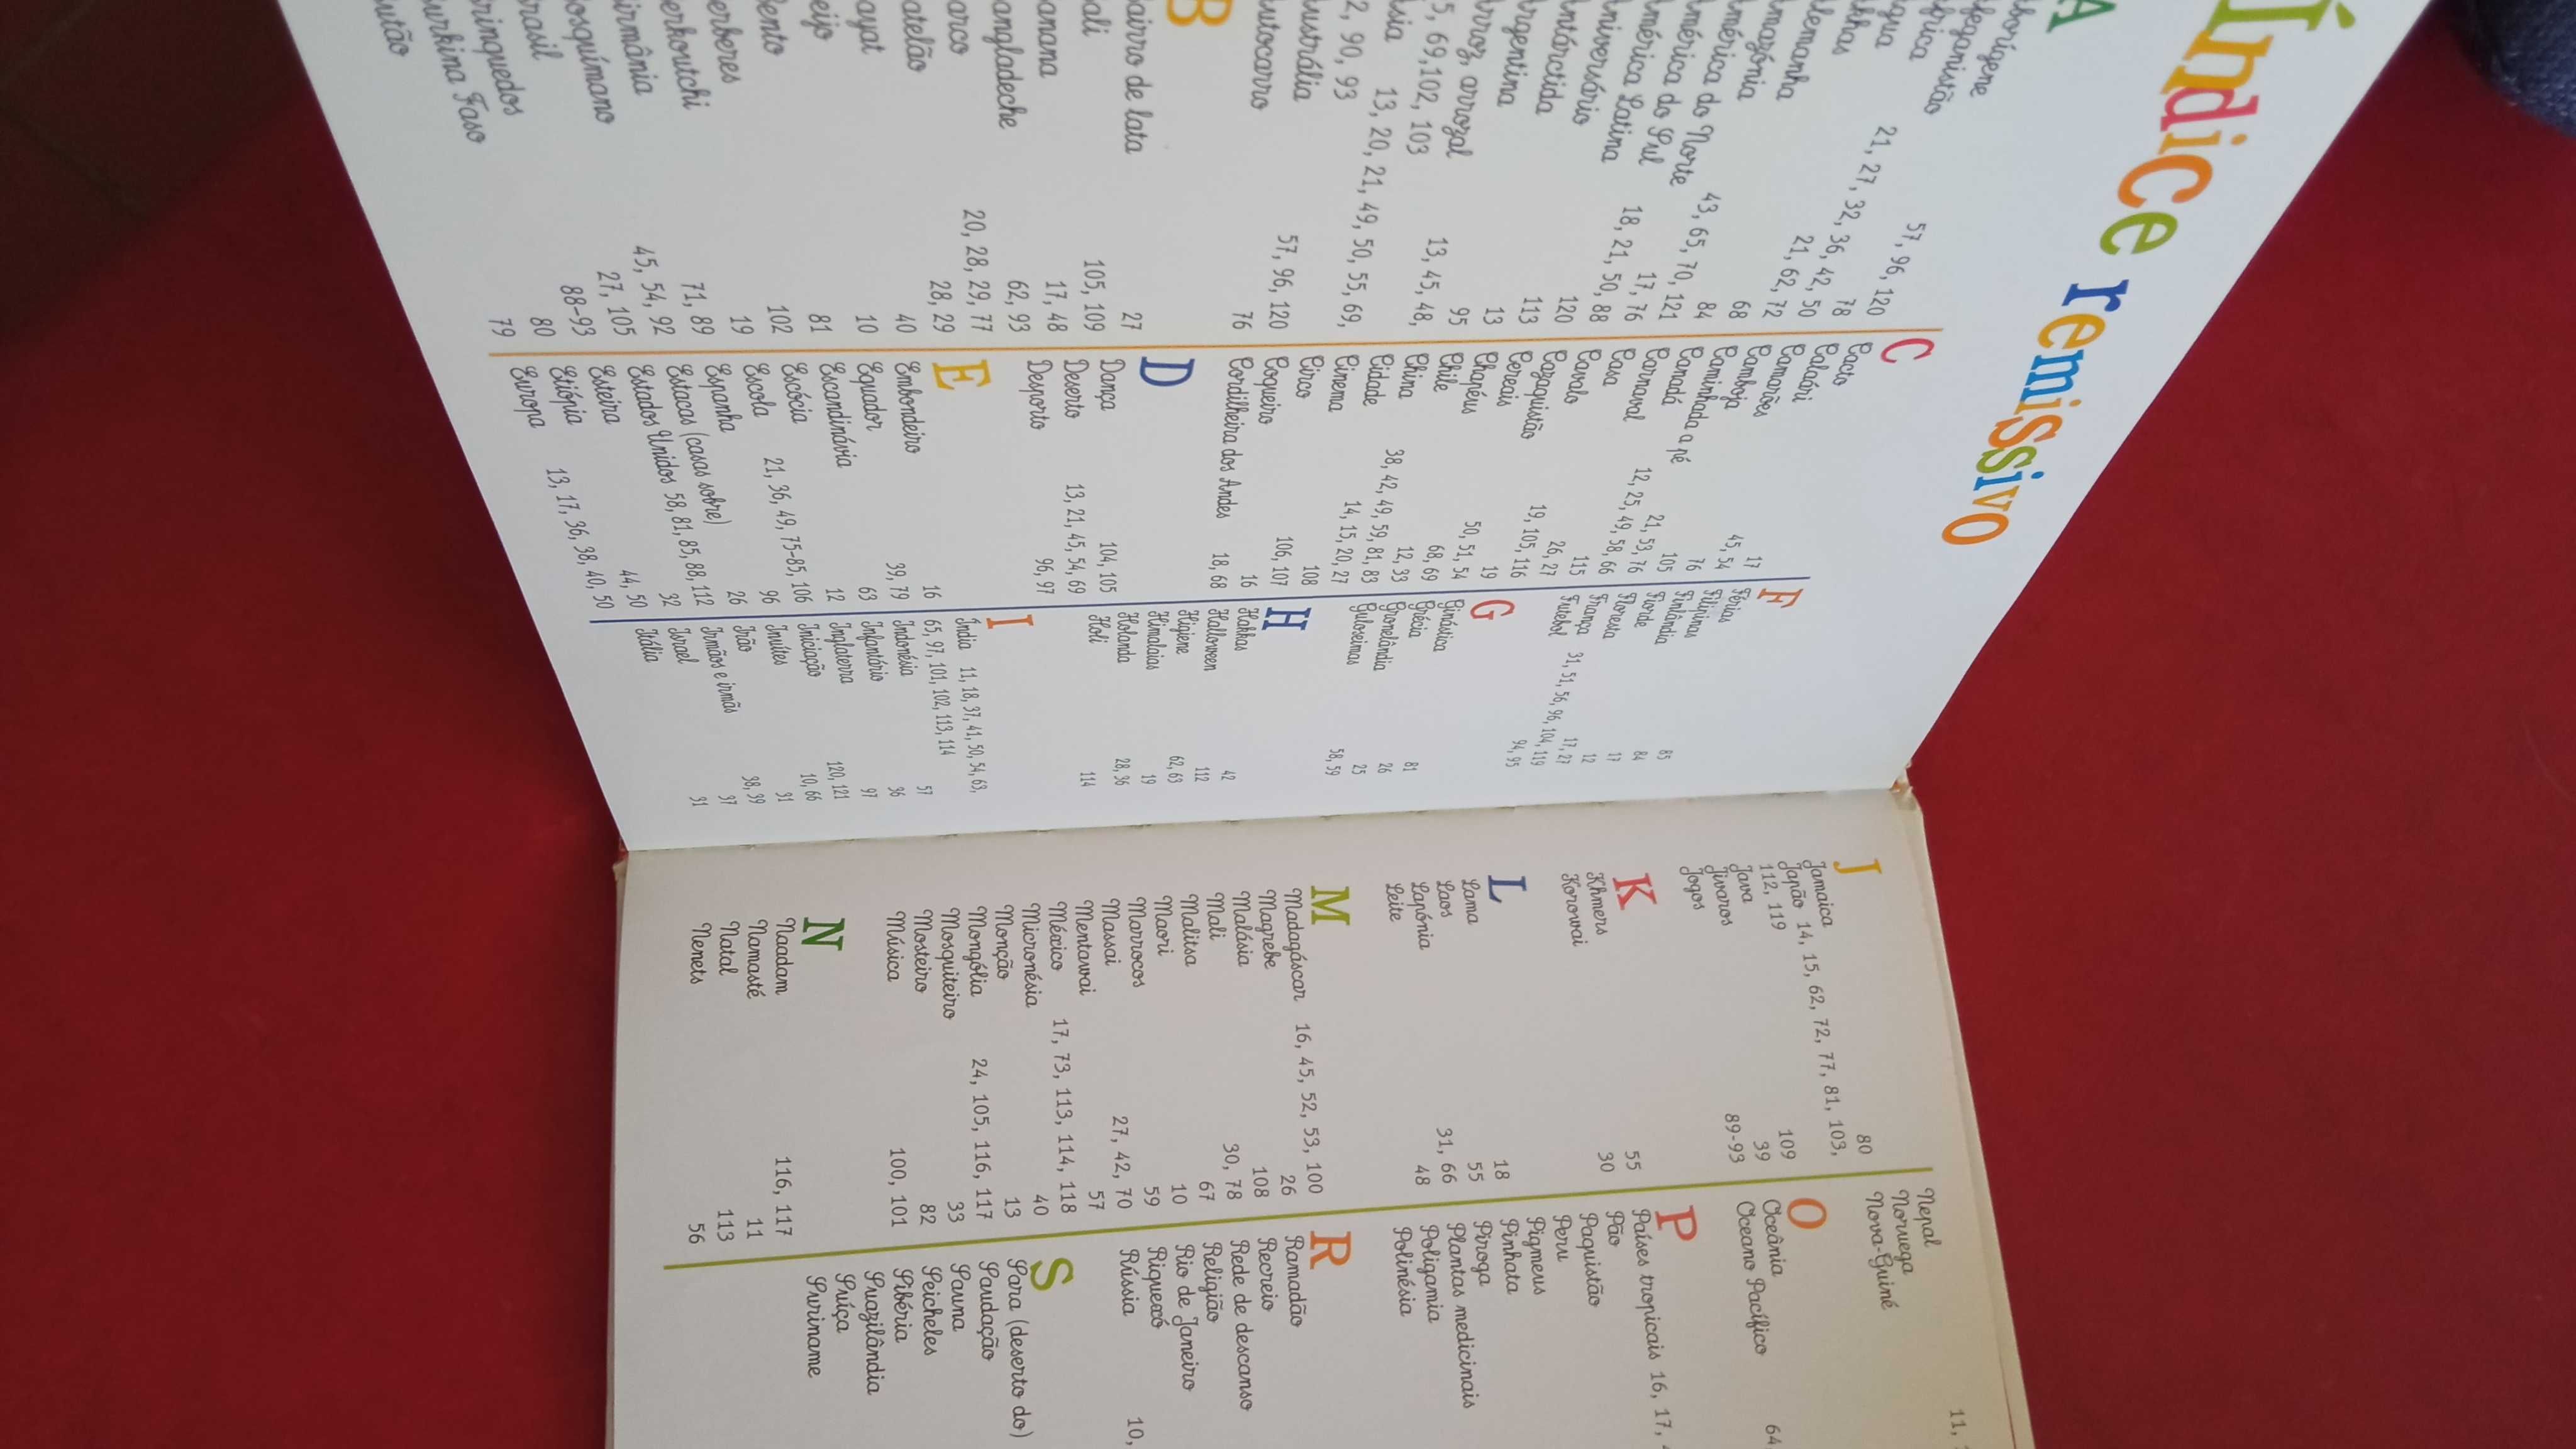 Índice remissivo
A
borígene 57, 96, 120
feganistão 78
frica 21, 27, 32, 36, 42, 50
gua 21, 62, 72
khas 68
lemanha 84
mazónia 43, 65, 70, 121
mérica do Norte 17, 76
mérica do Sul 18, 21, 50, 88
mérica Latina 120
niversário 113
ntárctida 13
rgentina 95
rroz, arrozal 13, 45, 48,
5, 69, 102, 103
sia 13, 20, 21, 49, 50, 55, 69,
2, 90, 93
ustrália 57, 96, 120
utocarro 76
B
airro de lata 27
ali 105, 109
anana 17, 48
angladeche 62, 93
arco 20, 28, 29, 77
atelão 28, 29
ayat 40
eijo 10
ento 81
erberes 102
erkoutchi 19
irmânia 71, 89
osquímano 45, 54, 92
rasil 27, 105
rinquedos 88-93
urkina Faso 80
utão 79
C
Cacto 17
Calaári 45, 54
Camarões 76
Camboja 105
Caminhada a pé 21, 53, 76
Canadá 12, 25, 49, 58, 66
Carnaval 115
Casa 26, 27
Cavalo 19, 105, 116
Cazaquistão 19
Cereais 50, 51, 54
Chapéus 68, 69
Chile 12, 33
China 38, 42, 49, 59, 81, 83
Cidade 14, 15, 20, 27
Cinema 108
Circo 106, 107
Coqueiro 16
Cordilheira dos Andes 18, 68
D
Dança 104, 105
Deserto 13, 21, 45, 54, 69
Desporto 96, 97
E
Embondeiro 16
Equador 39, 79
Escandinávia 63
Escócia 12
Escola 21, 36, 49, 75-85, 106
Espanha 96
Estacas (casas sobre) 26
Estados Unidos 58, 81, 85, 88, 112
Esteira 32
Etiópia 44, 50
Europa 13, 17, 36, 38, 40, 50
F
Férias 85
Filipinas 84
Finlândia 17
Fiorde 12
Floresta 17, 27
França 31, 51, 56, 96, 104, 119
Futebol 94, 95
G
Ginástica 81
Grécia 26
Gronelândia 25
Guloseimas 58, 59
H
Hakkas 42
Halloween 112
Higiene 62, 63
Himalaias 19
Holanda 28, 36
Holi 114
I
Índia 11, 18, 37, 41, 50, 54, 63,
65, 97, 101, 102, 113, 114
Indonésia 57
Infantário 36
Inglaterra 97
Iniciação 120, 121
Inuítes 10, 66
Irão 31
Irmãos e irmãs 38, 39
Israel 37
Itália 31
J
Jamaica 80
Japão 14, 15, 62, 72, 77, 81, 103,
112, 119
Java 109
Jivaros 39
Jogos 89-93
K
Khmers 55
Korowai 30
L
Lama 18
Laos 55
Lapónia 31, 66
Leite 48
M
Madagáscar 16, 45, 52, 53, 100
Magrebe 26
Malásia 108
Mali 30, 78
Malitsa 67
Maori 10
Marrocos 59
Massai 27, 42, 70
Mentawai 57
México 17, 73, 113, 114, 118
Micronésia 40
Monção 13
Mongólia 24, 105, 116, 117
Mosquiteiro 33
Mosteiro 82
Música 100, 101
N
Naadam 116, 117
Namasté 11
Natal 113
Nenets 56
Nepal 11,
Noruega
Nova-Guiné
O
Oceânia
Oceano Pacífico 64
P
Países tropicais 16, 17,
Pão
Paquistão
Peru
Pigmeus
Pinhata
Piroga
Plantas medicinais
Poligamia
Polinésia
R
Ramadão
Recreio
Rede de descanso
Religião
Rio de Janeiro
Riquexó
Rússia 10,
S
Sara (deserto do)
Saudação
Sauna
Seicheles
Sibéria
Suazilândia
Suíça
Suriname